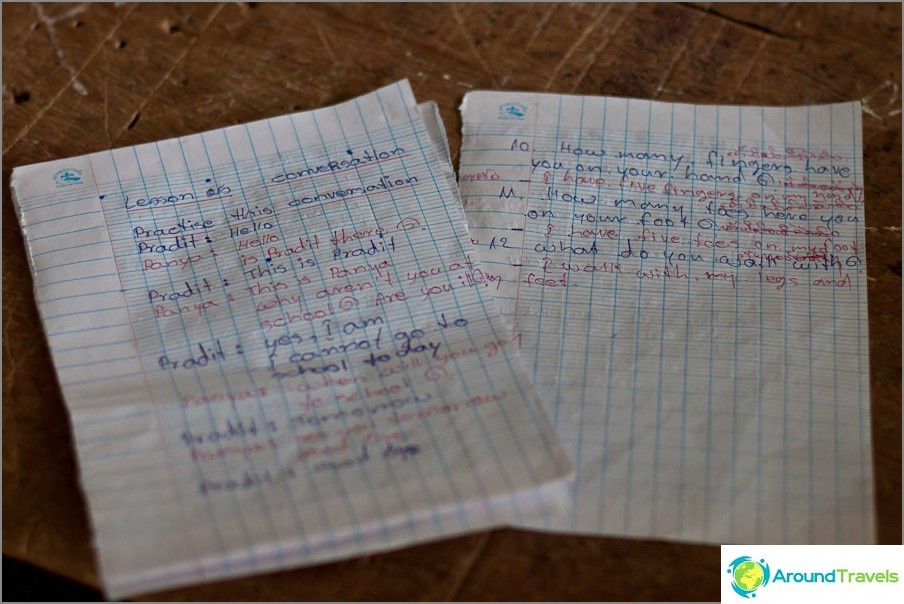 Lesson on conversation
Practise this conversation
Pradit: Hello
Panya: Hello
is Pradit there?
Pradit: This is Pradit
Panya: This is Panya
why aren't you at
school? Are you ill?
Pradit: yes, i am
I cannot go to
school today
Panya: when will you go
to school?
Pradit: Tomorrow
Panya: see you tomorrow
Pradit: Good bye
10. How many fingers have
you on your hand?
- I have five fingers
11. How many toes have you
on your foot?
- I have five toes on my foot
12 what do you walk with?
- I walk with my legs and
feet.
AroundTravels